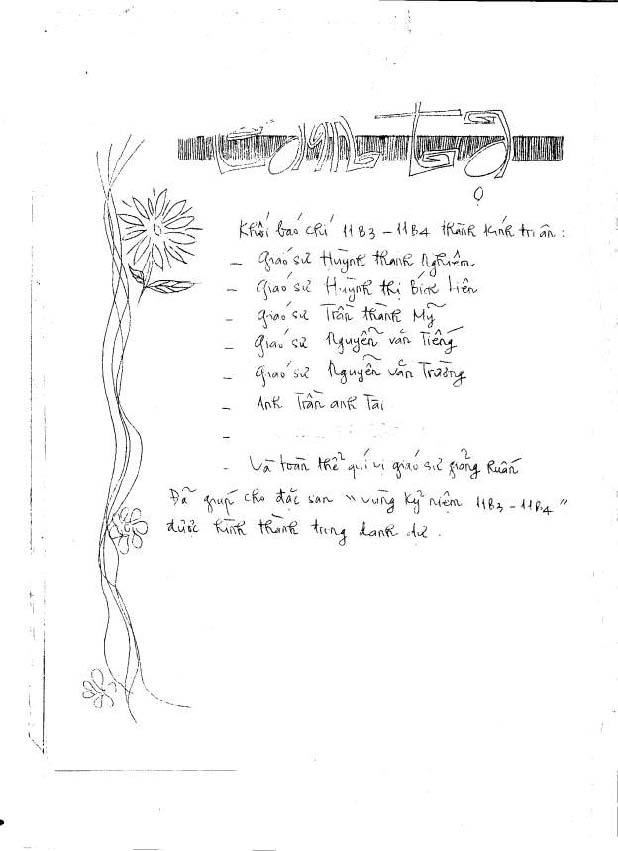 CẢM TẠ
Khối báo chí 11B3 - 11B4 thành kính tri ân :
- Giáo sư Huỳnh thanh Nghiêm
- Giáo sư Huỳnh thị Bích Liên
- Giáo sư Trần thanh Mỹ
- Giáo sư Nguyễn văn Tiếng
- Giáo sư Nguyễn văn Trường
- Anh Trần anh Tài
-
- Và toàn thể quí vị giáo sư giảng huấn
Đã giúp cho đặc san "vùng kỷ niệm 11B3 - 11B4"
được hình thành trong danh dự .